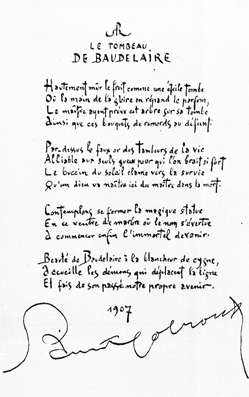 LE TOMBEAU
DE BAUDELAIRE
Hautement mûr le fruit comme une étoile tombe
Où la main de la gloire en répand le parfum,
Le maître ayant privé cet arbre sur sa tombe
Ainsi que ces bouquets de remords au défunt.
Par-dessus le faux or des tanteurs de la vie
Alliable aux seuls gueux por qui l'on brait si fort
Le buccin du soleil clame vers la survie
Qu'un dieu va naître ici du maître dans la mort.
Contemplons se former la magique statue
En ce ventre de marbre où le nom s'évertue
A commencer enfin l'immortel devenir.
Beauté de Baudelaire à la blancheur de cygne,
Accueille les démons qui déplacent la ligne
Et fais de son passé notre propre avenir.
1907